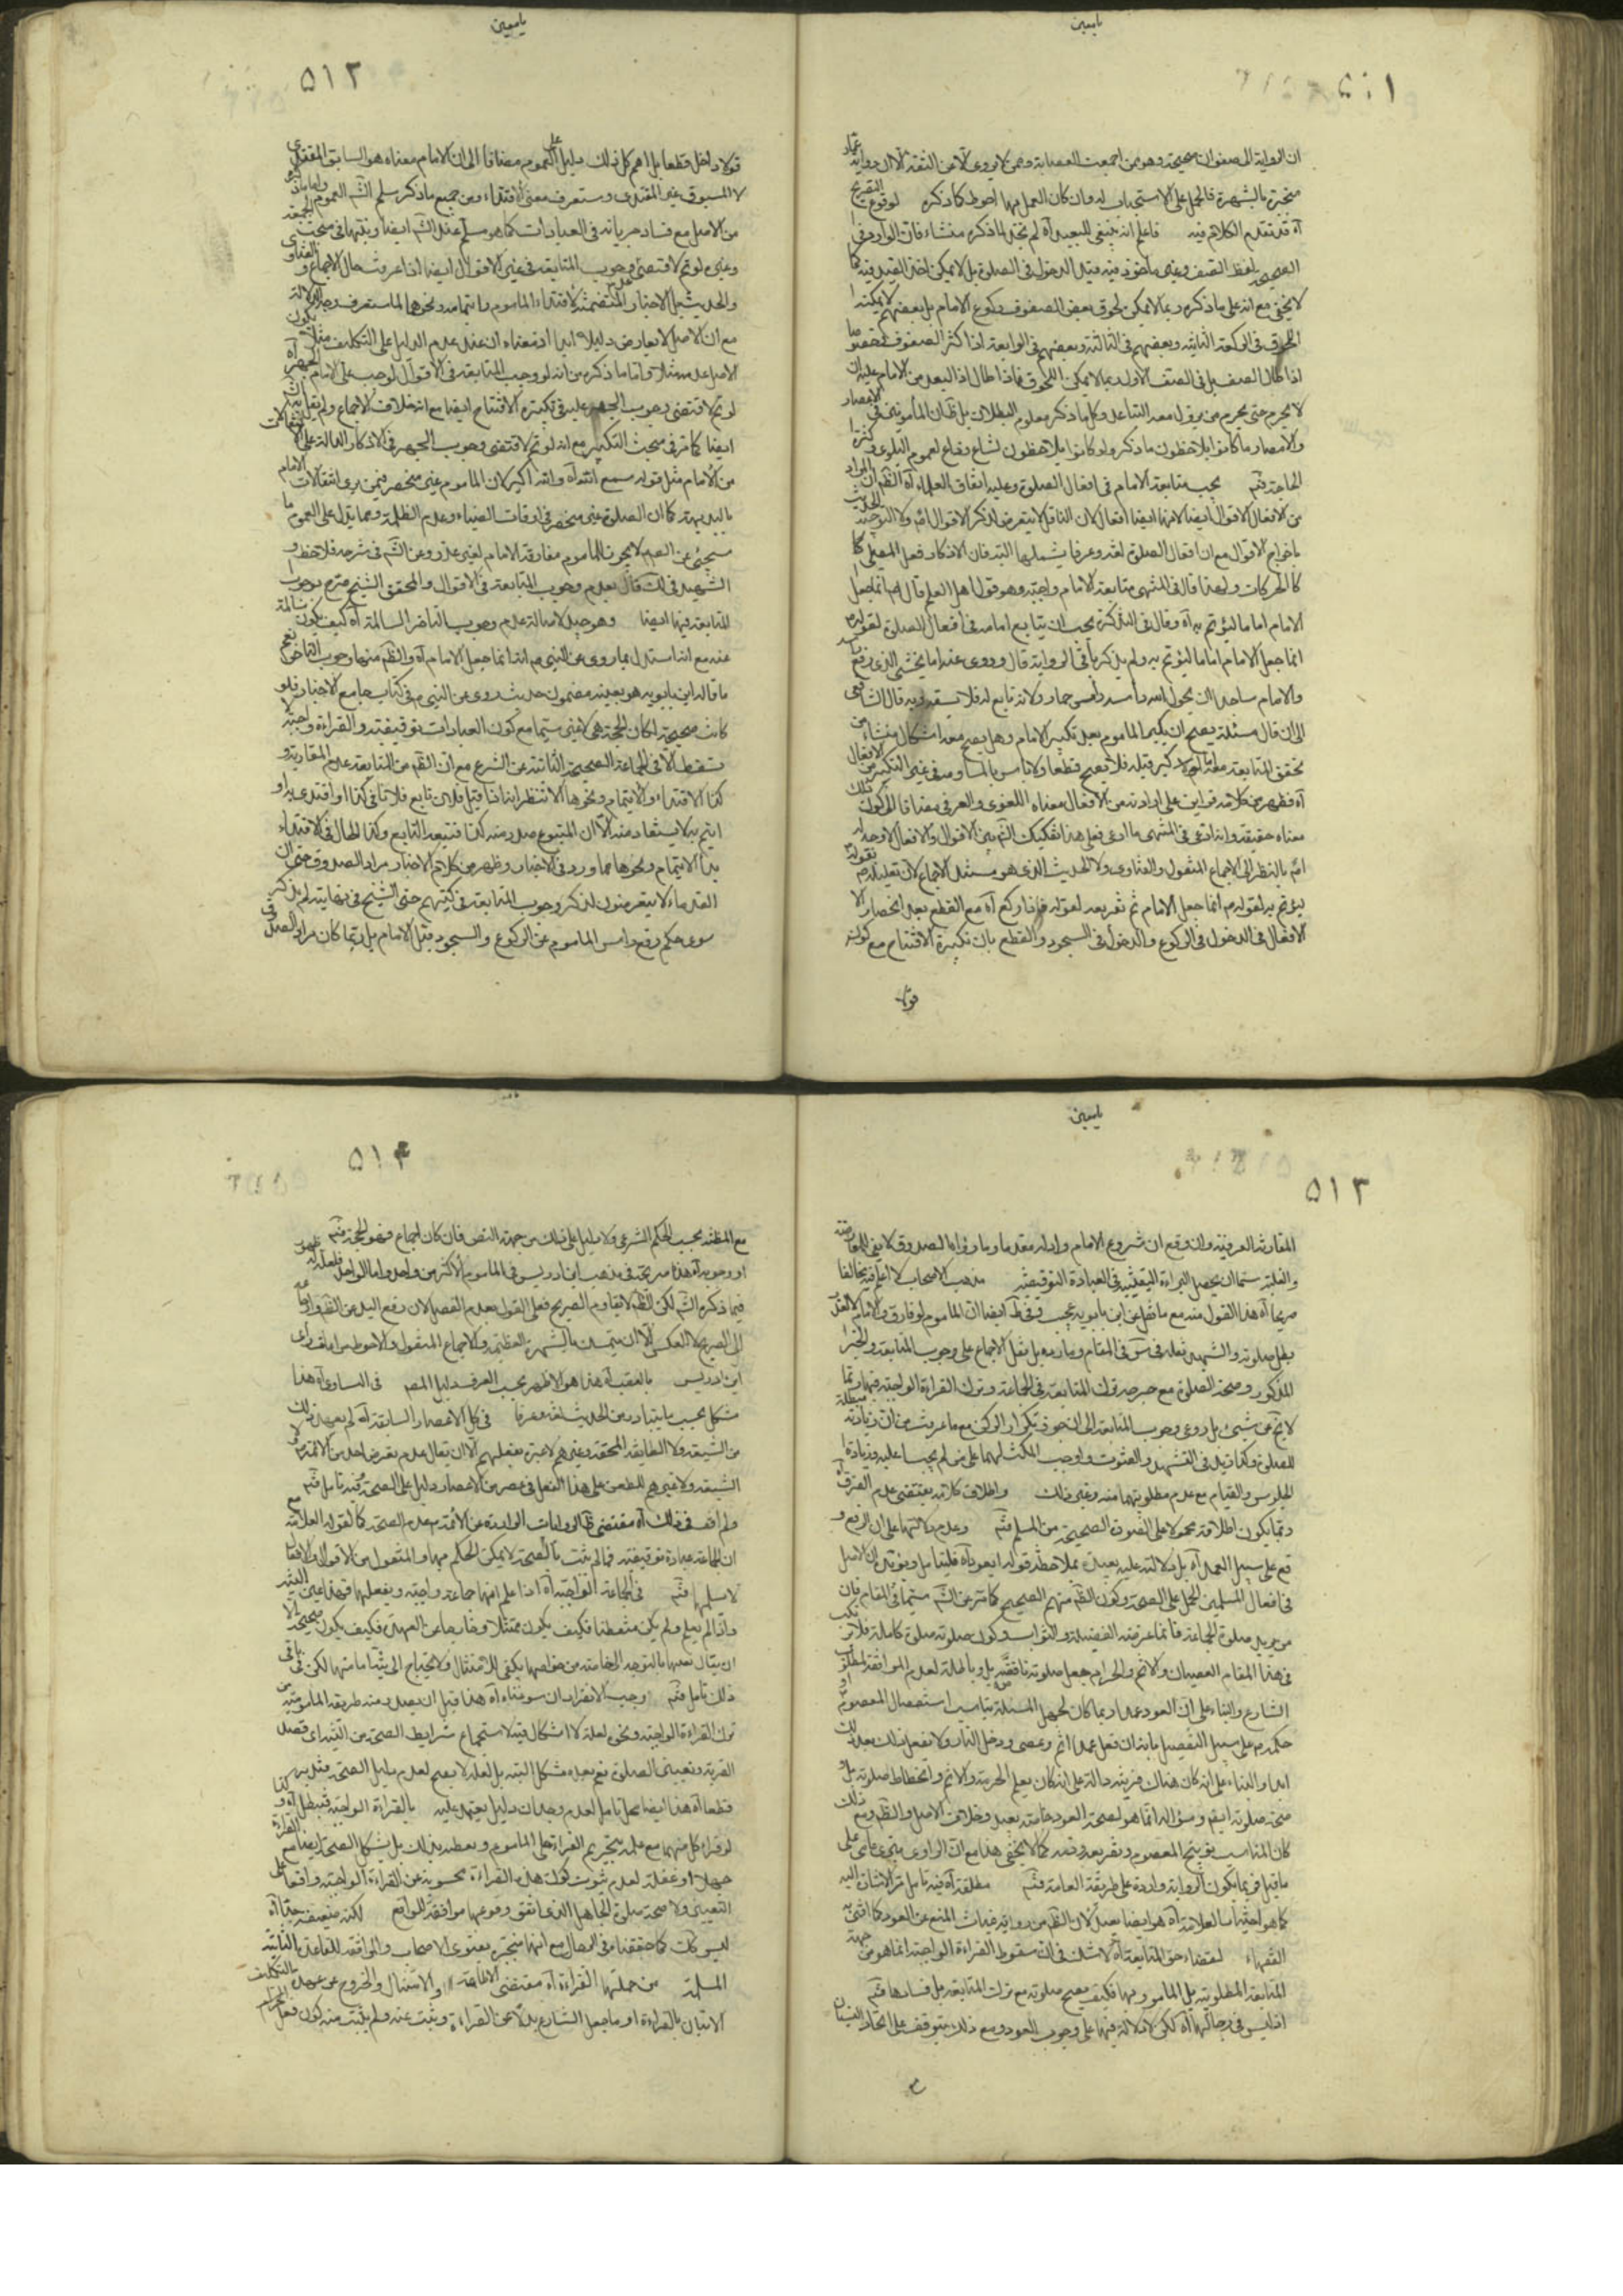 يا معين
٥١١
ان الرواية الى صفوان صحيحة وهو ممن اجمعت العصابة وممن لا يروى الا عن الثقة الا ان رواية
منجبرة بالشهرة فالحمل على الاستحباب لا وان كان العمل بها احوط كما ذكره لوقوع التصريح
آه قد تقدم الكلام فيه فاعلم انه ينبغى للبعيد آه لم نجد لما ذكره منشاء فان الوارد فى
الصحيح لفظ الصف وغير ماخوذ فيه قبل الدخول فى الصلوة بل لا يمكن اخذ القيد فيه كما
لا يخفى مع انه على ما ذكره ربما لا يمكن لحوق بعض الصفوف ركوع الامام بل بعضهم لا يمكنه
اللحوق فى الركعة الثانية وبعضهم فى الثالثة وبعضهم فى الرابعة اذا كثر الصفوف
اذا طال الصف بل فى الصف الاول ربما لا يمكن اللحوق فاذا طال اذا البعد من الامام عليه ان
لا يحرم حتى يحرم من يزول معه التباعد وكل ما ذكر معلوم البطلان بل ظ ان المأمومين فى الاعصار
والامصار ما كانوا يلاحظون ما ذكر ولو كانوا يلاحظون لشاع وذاع لعموم البلوى وكثرة
الحاجة فتم يجب متابعة الامام فى افعال الصلوة وعليه اتفاق العلماء آه الظم ان المراد
من الافعال الاقوال ايضا لانها ايضا افعال لان الناقل لا يتعرض لذكر الاقوال اصلا ولا
باخراج الاقوال مع ان افعال الصلوة لغة وعرفا يشملها البتة فان الاذكار فعل المصلى كما
كالحركات ولهذا قال فى المنتهى متابعة الامام واجبة وهو قول اهل العلم قال ص انما جعل
الامام اماما ليؤتم به آه وقال فى التذكرة يجب ان يتابع امامه فى افعال الصلوة لقوله ص
انما جعل الامام اماما ليؤتم به ولم يذكر باقى الرواية قال وروى عنه اما يخشى الذى رفع راسه
والامام ساجد ان يحول الله راسه راس حمار ولانه تابع له فلا يسبقه وبه قال الشافعى
الى ان قال مسئلة يصح ان يكبر الماموم بعد تكبير الامام وهل يصح معه اشكال منشاءه من
تحقق المتابعة معه ام لا ولو كبر قبله فلا يصح قطعا ولا باس بالمساوقة فى غير التكبير من الافعال
آه فظهر من كلامه قراين على ارادته من الافعال معناه اللغوى والعرفى مضافا الى كون ذلك
معناه حقيقة وانه ادعى فى المنتهى ما ادعى فعلى هذا تفكيك الش بين الاقوال والافعال لا وجه له
اصلا بالنظر الى الاجماع المنقول والفتاوى ولا الحديث الذى هو مستند الاجماع لان تعليله ص بقوله
ليؤتم به لقوله ص انما جعل الامام ثم تفريعه لقوله فاذا ركع آه مع القطع بعدم انحصار
الافعال فى الدخول فى الركوع والدخول فى السجود والقطع بان تكبيرة الافتتاح مع كونه
قولا
يا معين
٥١٢
قولا داخل قطعا بل اهم كل ذلك دليل على العموم مضافا الى ان الامام معناه هو السابق المقتدى
لا المسبوق غير المقتدى وستعرف معنى الاقتداء ومن جميع ما ذكر سلم الش العموم واما ما ذكره
من الاصل مع فساد جريانه فى العبادات كما هو مسلم عند الش ايضا وينبها فى مبحث الجمعة
وغيره لو تم لاقتضى وجوب المتابعة فى غير الاقوال ايضا اذا عرفت حال الاجماع والفتاوى
والحديث بل الاخبار المتضمنة لاقتداء الماموم وايتمامه ونحوهما لما ستعرف وجه الدلالة
مع ان الاصل لا يعارض دليلا ابدا اذ معناه ان عند عدم الدليل على التكليف مثلا يكون
الاصل عدمه مثلا واما ما ذكره من انه لو وجب المتابعة فى الاقوال لوجب على الامام الجهر آه
لو تم لاقتضى وجوب الجهر عليه فى تكبيرة الافتتاح ايضا مع انه خلاف الاجماع ولم يقل به الش
ايضا كما مر فى مبحث التكبير مع انه لو تم لاقتضى وجوب الجهر فى الاذكار الدالة على الانتقالات
من الامام مثل قوله سمع الله آه والله اكبر لان الماموم غير منحصر فيمن يرى انتقالات الامام
بالبديهة كما ان الصلوة غير منحصرة فى اوقات الضياء وعدم الظلمة ومما يدل على العموم ما
سيجئ عن المص لا يجوز للماموم مفارقة الامام لغير عذر وعن الش فى شرحه فلاحظ و
الشهيد فى لك قال بعدم وجوب المتابعة فى الاقوال والمحقق الشيخ صرح بوجوب
المتابعة فيها ايضا وهو جيد لاصالة عدم وجوب التاخر السالمة آه كيف يكون سالمة
عنه مع انه استدل بما روى عن النبى ص انه انما جعل الامام آه والظم منها وجوب التاخر نعم
ما قاله ابن بابويه هو بعينه مضمون حديث روى عن النبى ص فى كتاب جامع الاخبار فلو
كانت صحيحة لكان الحجة هى لا غير سيما مع كون العبادات توقيفية والقراءة واجبة لا
تسقط الا فى الجماعة الصحيحة الثابتة عن الشرع مع ان الظم من المتابعة عدم المقارنة و
كذا الاقتداء والايتمام ونحوهما الا تنظر انه اذا قيل فلان تابع فلانا فى كذا او اقتدى به او
ايتم به لا يستفاد منه الا ان المتبوع صدر منه كذا فتبعه التابع وكذا الحال فى الاقتداء
به والايتمام ونحوهما مما ورد فى الاخبار وظهر من كلام الاخبار مراد الصدوق حتى ان
القدماء لا يتعرضون لذكر وجوب المتابعة فى كتبهم حتى الشيخ فى نهايته لم يذكر
سوى حكم رفع راس الماموم عن الركوع والسجود قبل الامام بل ربما كان مراد الصدوق
يا معين
٥١٣
المقارنة العرفية وان وقع ان شروع الامام وارادته مقدما وما رواه الصدوق لا ينفى المقارنة
والقبلية سيما ان يحصل البراءة اليقينية فى العبادة التوقيفية مذهب الاصحاب لا اعلم فيه مخالفا
صريحا آه هذا القول منه مع ما نقل عن ابن بابويه عجيب وفى ط ايضا ان الماموم لو فارق والامام لا لعذر
بطل صلوته والشهيد نقله فى س فى المقام وما رده بل نقل الاجماع على وجوب المتابعة والخبر
المذكور وصحة الصلوة مع حرمة ترك المتابعة فى الجماعة وترك القراءة الواجبة فيها ربما
لا يتم عن شيئ بل روعى وجوب المتابعة الى ان جوز تكرار الركن مع ما عرفت من ان زيادته مبطلة
للصلوة وكذا زيد فى التشهد والقنوت واوجب المكث لهما على من لم يجب عليه وزيادة
الجلوس والقيام مع عدم مطلوبيتهما منه وغير ذلك واطلاق كلامه يقتضى عدم الفرق آه
ربما يكون اطلاقه محمولا على الصورة الصحيحة من المسلم فتم وعدم دلالتها على ان الرفع و
قع على سبيل العمد آه بل دلالته عليه بعيدة بملاحظة قوله ايعود آه فليتامل ويؤيده ان الاصل
فى افعال المسلمين الحمل على الصحة وكون الظم منهم الصحيح كما مر عن الش سيما فى المقام فان
من يريد صلوة الجماعة فانما غرضه الفضيلة والثواب وكون صلوته صلوة كاملة فلا يرتكب
فى هذا المقام العصيان والاثم والحرام بجعل صلوته ناقصة بل وباطلة لعدم الموافقة لمطلوب
الشارع والبناء على ان العود عمدا ربما كان لجهل المسئلة يناسب استفصال المعصوم او
حكمه ص على سبيل التفصيل بانه ان فعل عمدا اثم وعصى ودخل النار ولا تفعل ذلك بعد ذلك
ابدا والبناء على انه كان هناك قرينة دالة على انه كان يعلم الحرمة والاثم وانحطاط صلوته بل و
صحة صلوته ايضا وسؤاله انما هو لصحة العود خاصة بعيد وخلاف الاصل والظم ومع ذلك
كان المناسب توبيخ المعصوم وتقريعه وقصه كما لا يخفى هذا مع ان الراوى سنى عامى على
ما قيل فربما يكون الرواية واردة على طريقة العامة فتم مطلقة آه فيه تامل مر الاشارة اليه
كما هو اختيار العلامة آه هو ايضا بعيد لان الظم من رواية غياث المنع عن العود كما افتى به
الفقهاء لقضاء حق المتابعة آه لا شك فى ان سقوط القراءة الواجبة انما هو من جهة
المتابعة المطلوبة بل المامور بها فكيف يصح صلوته مع ترك المتابعة بل فسادها فتم
اذ ليس فى رجالها آه لكن لا دلالة فيها على وجوب العود ومع ذلك يتوقف على اتحاد النسيان
مع
٥١٤
مع المظنة بحسب الحكم الشرعى ولا دليل على ذلك من جهة النص فان كان اجماع فهو الحجة فتم
او وجوبه آه هذا صريح فى مذهب ابن ادريس فى الماموم الاكثر من واحد واما الواحد فلعله
فيما ذكره الش لكن الظم لا يقاوم الصريح فعلى القول بعدم الفصل لان رفع اليد عن الظم وارجاعه
الى الصريح لا العكس الا ان يتمسك بالشهرة العظيمة والاجماع المنقول والاحوط مراعات راى
ابن ادريس بالعقب آه هذا هو الاظهر بحسب العرف دليل المص فى التساوى آه هذا
مشكل بحسب ما يتبادر من الحديث لغة وعرفا فى كل الاعصار السابقة آه لم يعهد ذلك
من الشيعة ولا الطايفة المحقة وغيرهم لا عبرة بفعلهم الا ان يقال عدم تعرض احد من الائمة ولا
الشيعة ولا غيرهم للطعن على هذا الفعل فى عصر من الاعصار دليل على الصحة وفيه تامل فتم
ولم اقف فى ذلك آه مقتضى ظ الروايات الواردة عن الائمة ع عدم الصحة كما لقوله العلامة مع
ان الجماعة عبادة توقيفية فما لم يثبت بالصحة لا يمكن الحكم بها والمنقول من الاقوال والافعال
لا يسلمها فتم فى الجماعة الواجبة آه اذا علم انها جماعة واجبة ويفعلها فهذا عين النية
واذا لم يعلم ولم يكن متفطنا فكيف يكون ممتثلا وخارجا عن العهدة فكيف يكون صحيحة الا
ان يقال نعمها بالتوجه الى خاصته من خواصها يكفى للامتثال ولا يحتاج الى نية امامتها لكن فى باقى
ذلك تامل فتم وجب الانفراد ان سوغناه آه هذا قبل ان يصدر منه طريقة المامومية من
ترك القراءة الواجبة ونحوه لعله لا اشكال فيه لاستجماع شرايط الصحة من النية اى قصد
القربة وتعيين الصلوة نعم بعده مشكل البتة بل لعله لا يصح لعدم دليل الصحة فتدبر
قطعا آه هذا ايضا محل تامل لعدم وجدان دليل يعتمد عليه بالقراءة الواجبة فتبطل آه و كذا
لو قراء كل منهما مع علمه بتحريم القراءة على الماموم وبعطيه ذلك بل يشكل الصحة ايضا مع القراءة
جهلا او غفلة لعدم ثبوت كون هذه القراءة محسوبة عن القراءة الواجبة واقعا على
التعيين ولا صحة صلوة الجاهل الذى اتفق وقوعها موافقة للواقع لكنه ضعيف جدا آه
ليس كك كما حققناه فى الرجال مع انها منجبرة بفتوى الاصحاب والموافقة للقاعدة الثابتة
المسلمة من جملتها القراءة آه مقتضى الاطاعة والامتثال والخروج عن عهدة التكليف
الاتيان بالقراءة او ما جعل الشارع بدلا عن القراءة ويثبت عنه ولم يثبت منه كون فعل الحرام